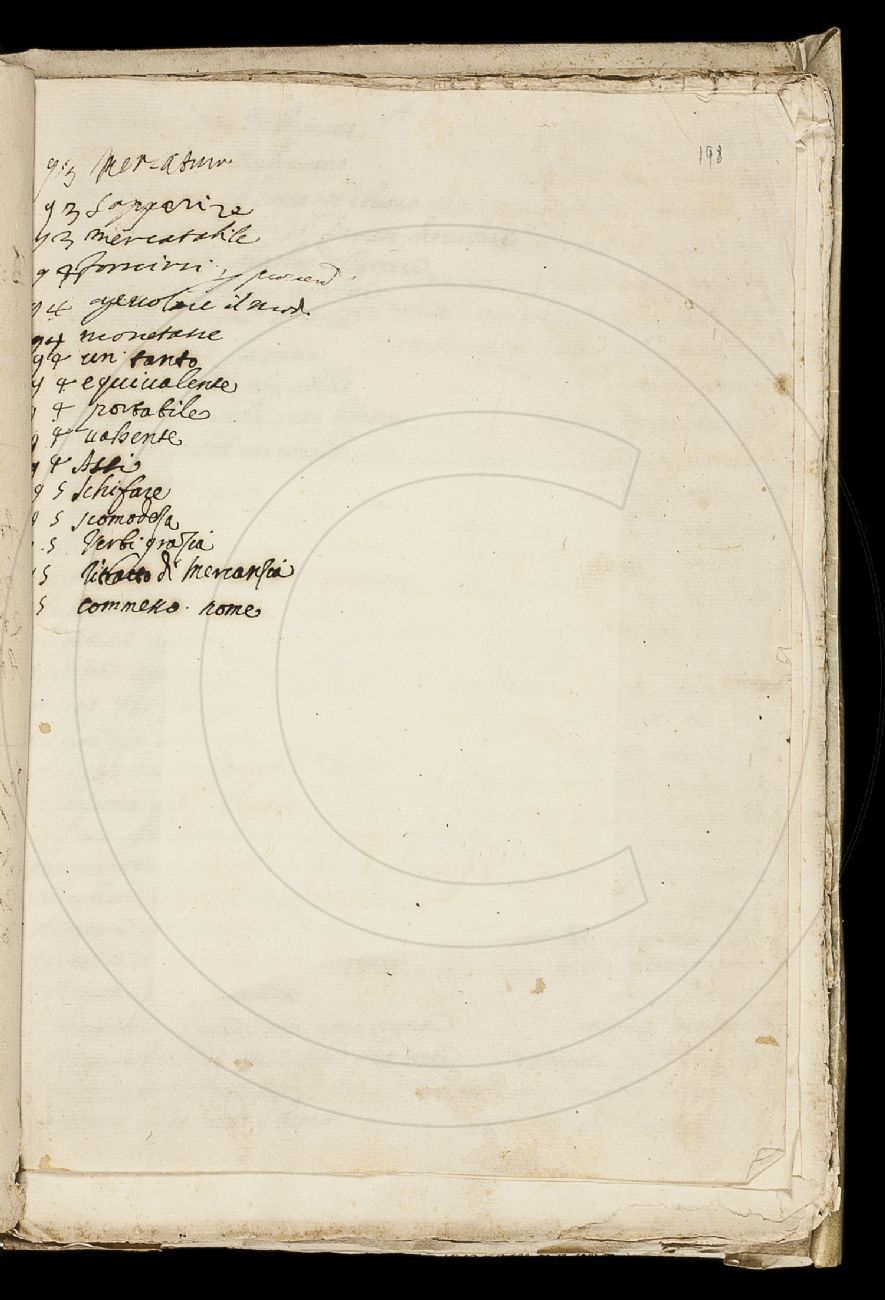 198
93 Mercatura
93 Sopperire
93 mercatabile
94 fornirsi
94 agevolare il
94 monetare
94 un tanto
94 equivalente
94 portabile
94 valsente
94 Assi
95 schifare
95 scomodezza
95 Verbi grazia
95 Ritratto di Mercanzia
5 commesso. nome